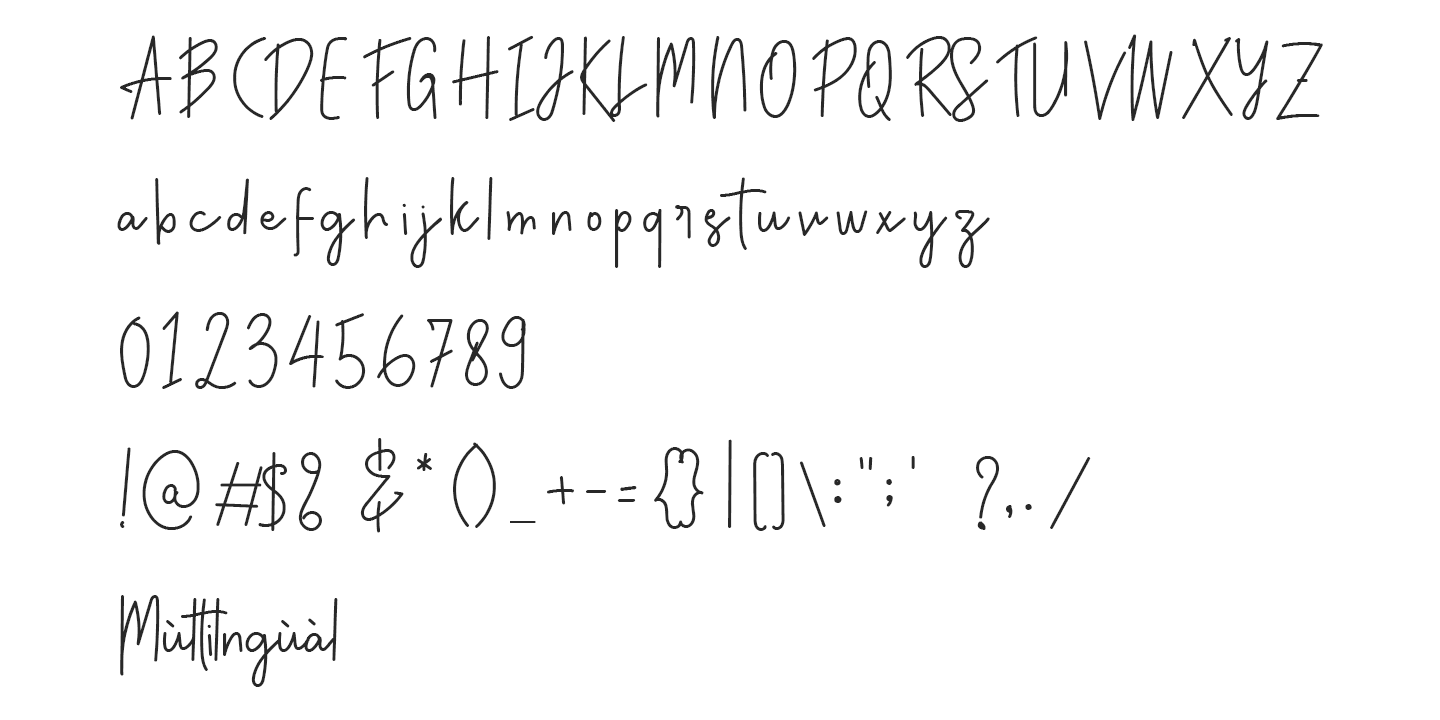 ABCDEFGHIJKLMNOPQRSTUVWXYZ
abcdefghijklmnopqrstuvwxyz
0123456789
!@#$% &*()_+-={}|[]\:";' ?,./
Mùltilngùàl